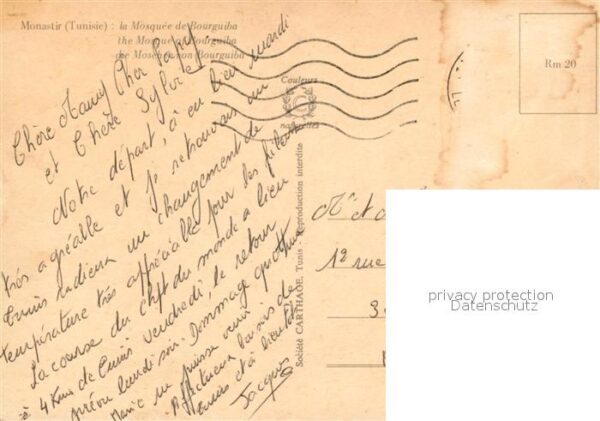 Monastir (Tunisie) : la Mosquée de Bourguiba
the Mosque of Bourguiba
die Moschee von Bourguiba
Couleurs
naturelles
Rm 20
Chère Mamy Cher Papy
et Chère Sylvie
Notre départ à eu lieu mardi
très agréable et je retrouvais un
Tunis radieux un changement de
température très appréciable pour les
La course du Chpt du monde a lieu
à 4 Kms de Tunis vendredi, le retour
prévu lundi soir. Dommage que
Marie ne puisse venir.
Affectueux baisers de
Tunis et à bientôt
Jacques
Société CARTHAGE, Tunis - Reproduction interdite
Mr et
12 rue
3
privacy protection
Datenschutz